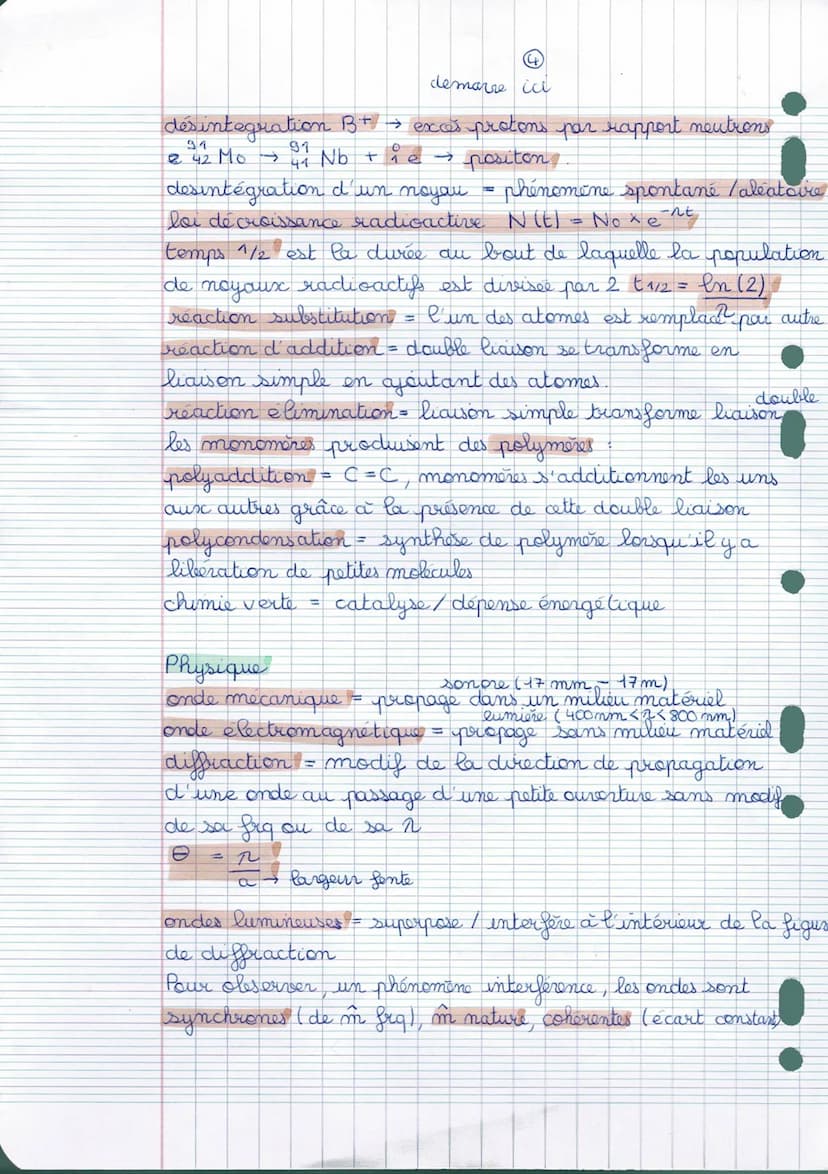 4
demarre ici
désintegration B+ → excés protons par rapport neutrons
e ⁹¹₄₂ Mo → ⁹¹₄₁ Nb + ⁰₁ e → positon.
desintégration d'un noyau = phénomène spontané / aléatoire
loi décroissance radioactive N(t) = No x e^-λt
temps 1/2 est la durée au bout de laquelle la population
de noyaux radioactifs est divisée par 2 t1/2 = ln(2)/λ
réaction substitution = l'un des atomes est remplacé par autre
réaction d'addition = double liaison se transforme en
liaison simple en ajoutant des atomes.
réaction élimination = liaison simple transforme liaison double
les monomères produisent des polymères :
polyaddition = C=C, monomères s'additionnent les uns
aux autres grâce à la présence de cette double liaison
polycondensation = synthèse de polymère lorsqu'il y a
libération de petites molécules
chimie verte = catalyse / dépense énergétique
Physique
sonore (17 mm - 17 m)
onde mécanique = propage dans un milieu matériel
lumière (400 nm < λ < 800 nm)
onde électromagnétique = propage sans milieu matériel
diffraction = modif de la direction de propagation
d'une onde au passage d'une petite ouverture sans modif
de sa frq ou de sa λ
θ = λ/a → largeur fente
ondes lumineuses = superpose / interfère à l'intérieur de la figur
de diffraction
Pour observer, un phénomène interférence, les ondes sont
synchrones (de m̂ frq), m̂ nature, cohérentes (écart constant)